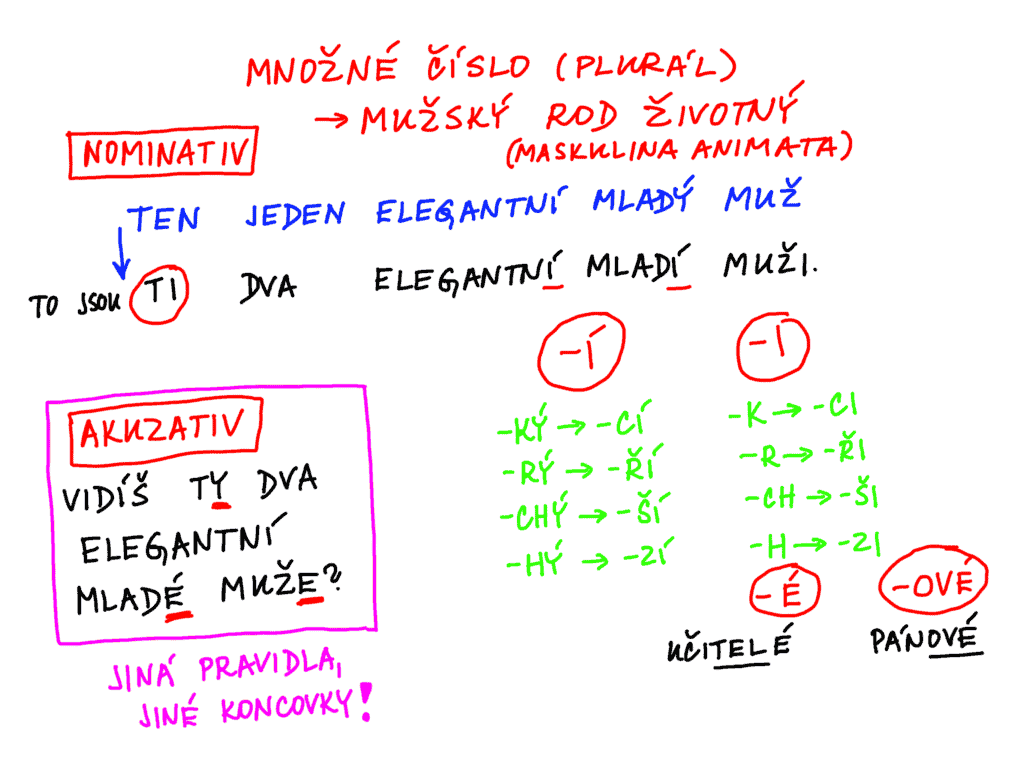 MNOŽNÉ ČÍSLO (PLURÁL)
→ MUŽSKÝ ROD ŽIVOTNÝ
(MASKULINA ANIMATA)
NOMINATIV
TEN JEDEN ELEGANTNÍ MLADÝ MUŽ
TO JSOU TI DVA ELEGANTNÍ MLADÍ MUŽI.
-Í -I
-KÝ → -CÍ
-RÝ → -ŘÍ
-CHÝ → -ŠÍ
-HÝ → -ZÍ
-K → -CI
-R → -ŘI
-CH → -ŠI
-H → -ZI
-É -OVÉ
UČITELÉ PÁNOVÉ
AKUZATIV
VIDÍŠ TY DVA
ELEGANTNÍ
MLADÉ MUŽE?
JINÁ PRAVIDLA,
JINÉ KONCOVKY!